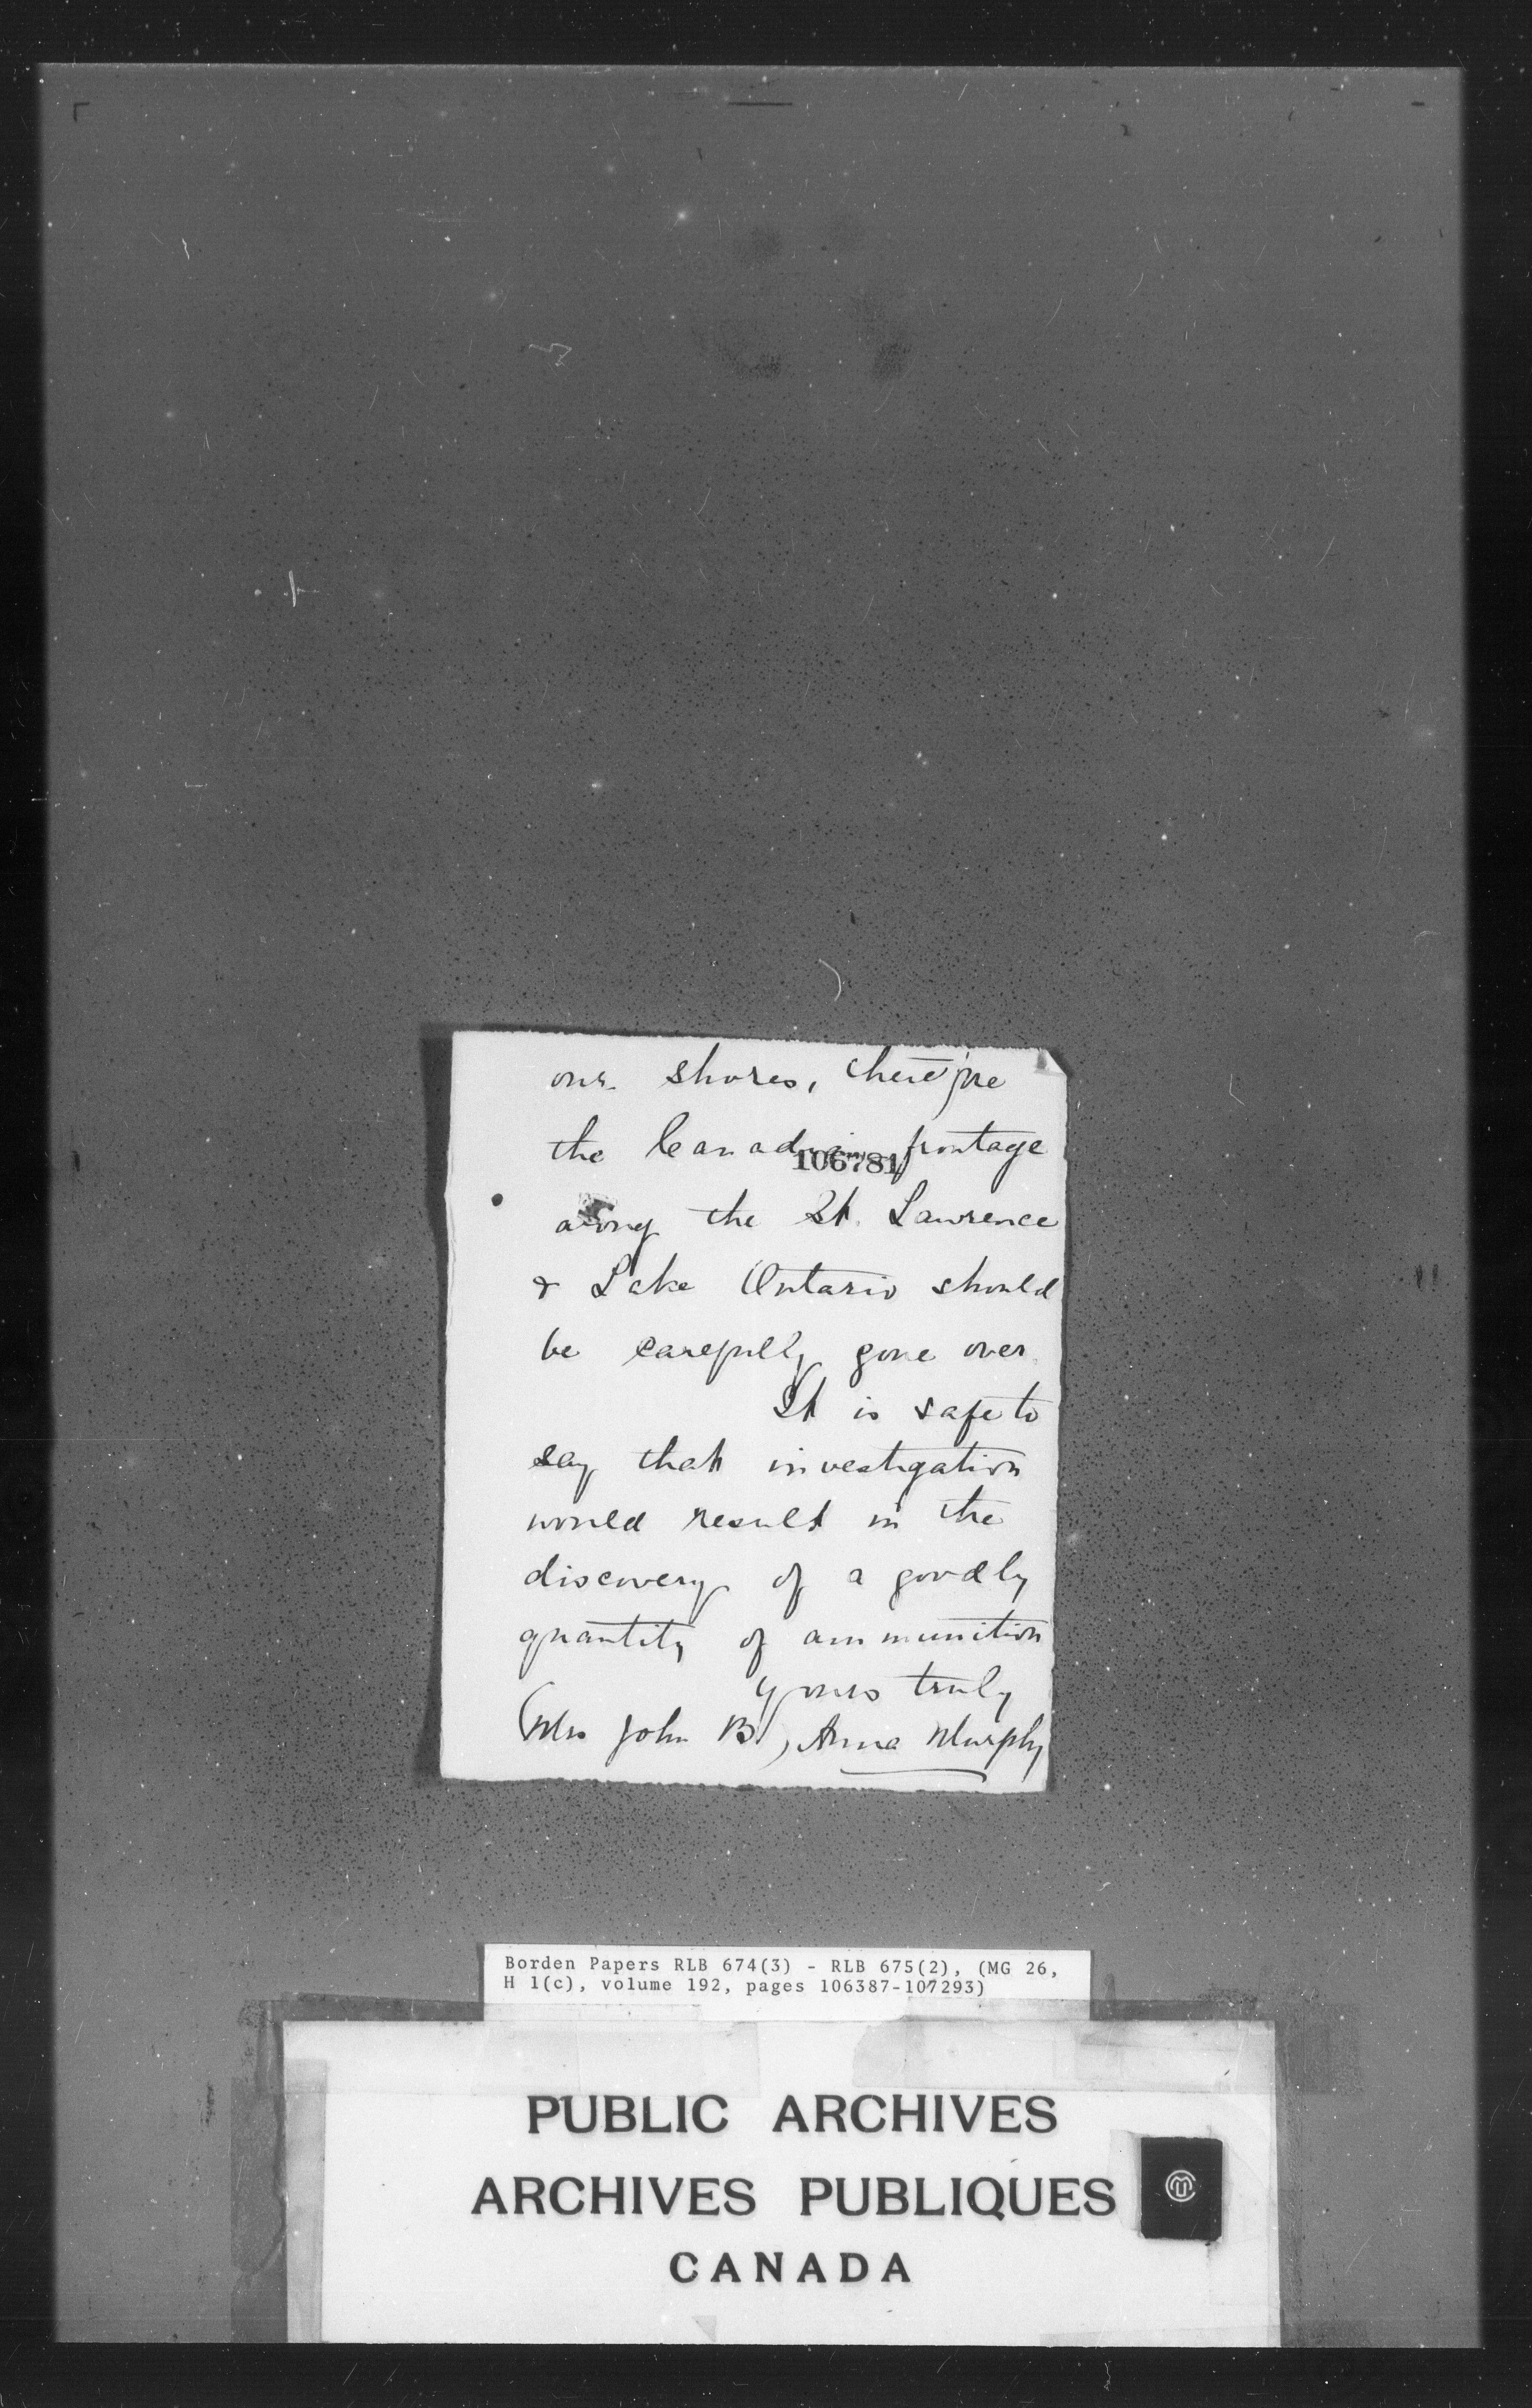 our shores, therefore
the Canadian frontage
106781
along the St. Lawrence
& Lake Ontario should
be carefully gone over.
It is safe to
say that investigation
would result in the
discovery of a goodly
quantity of ammunition
Yours truly
(Mrs John B.) Anna Murphy
Borden Papers RLB 674(3) - RLB 675(2), (MG 26,
H 1(c), volume 192, pages 106387-107293)
PUBLIC ARCHIVES
ARCHIVES PUBLIQUES
CANADA